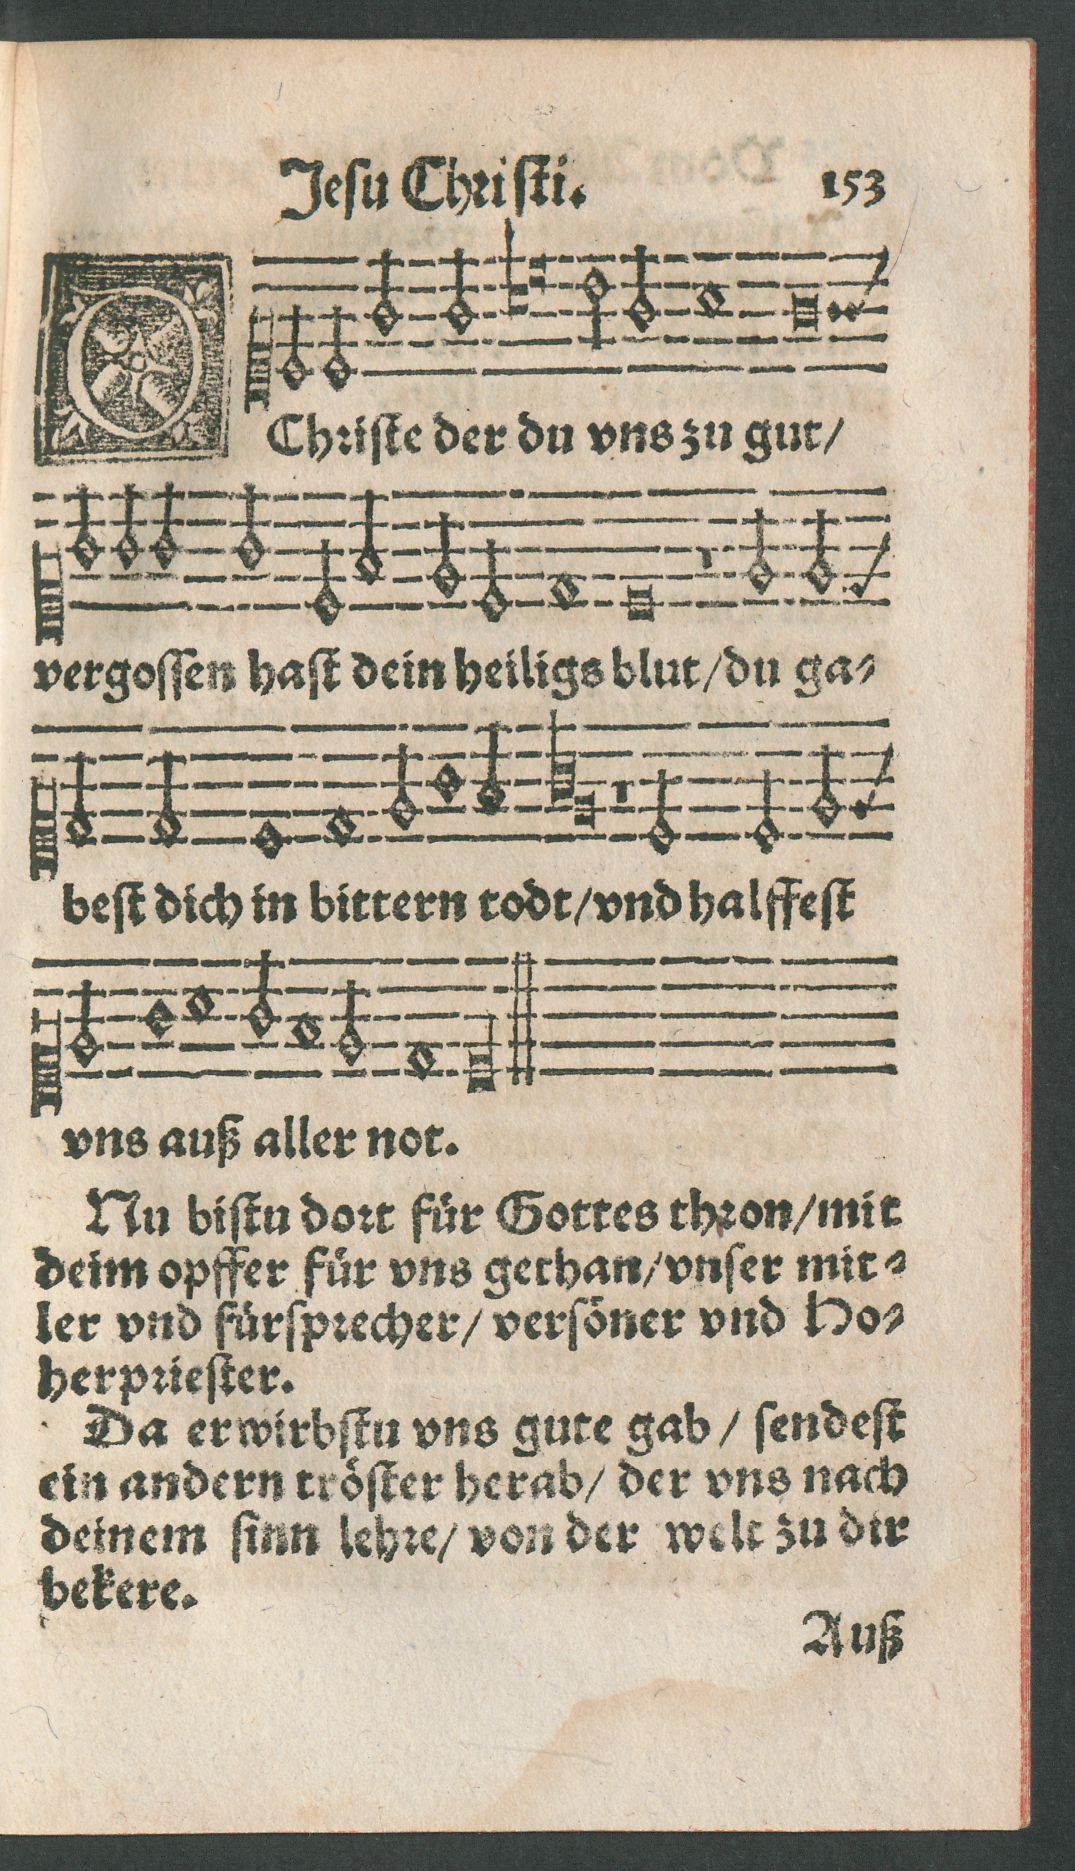 Jesu Christi. 153
O Christe der du vns zu gut/
vergossen hast dein heiligs blut/du ga⸗
best dich in bittern todt/vnd halffest
vns auß aller not.
Nu bistu dort für Gottes thron/mit
deim opffer für vns gethan/vnser mit⸗
ler vnd fürsprecher/ versöner vnd Ho⸗
herpriester.
Da erwirbstu vns gute gab/ sendest
ein andern tröster herab/ der vns nach
deinem sinn lehre/ von der welt zu dir
bekere.
Auß